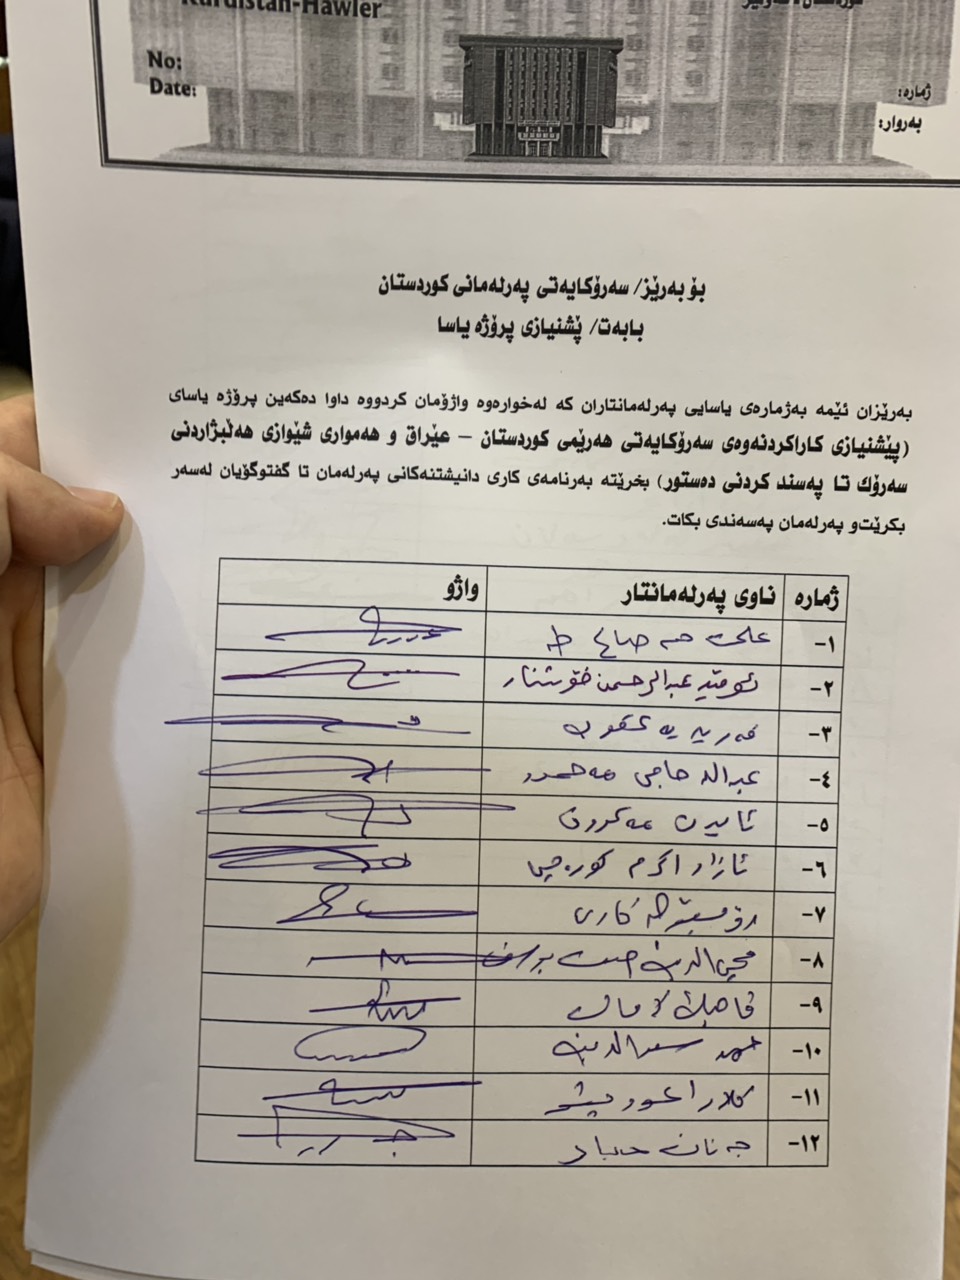 Kurdistan-Hawler
No:
Date:
ژمارە:
بەروار:
بۆ بەرێز/ سەرۆکایەتی پەرلەمانی کوردستان
بابەت/ پێشنیازی پرۆژە یاسا
بەرێزان ئێمە بەژمارەی یاسایی پەرلەمانتاران کە لەخوارەوە واژۆمان کردووە داوا دەکەین پرۆژە یاسای
(پێشنیازی کاراکردنەوەی سەرۆکایەتی هەرێمی کوردستان – عێراق و هەمواری شێوازی هەڵبژاردنی
سەرۆك تا پەسند کردنی دەستور) بخرێتە بەرنامەی کاری دانیشتنەکانی پەرلەمان تا گفتوگۆیان لەسەر
بکرێت‌و پەرلەمان پەسەندی بکات.
ژمارە ناوی پەرلەمانتار واژۆ
١- علی حمە صاڵح طە
٢- ئومێد عبدالرحمن خۆشناو
٣- یەعقوب
٤- عبداللە حاجی مەحمود
٥- ئایدن مەعروف
٦- ئازاد اکرم کورەچی
٧-
٨- محی الدین حسن یوسف
٩-
١٠- سعدالدین
١١-
١٢-